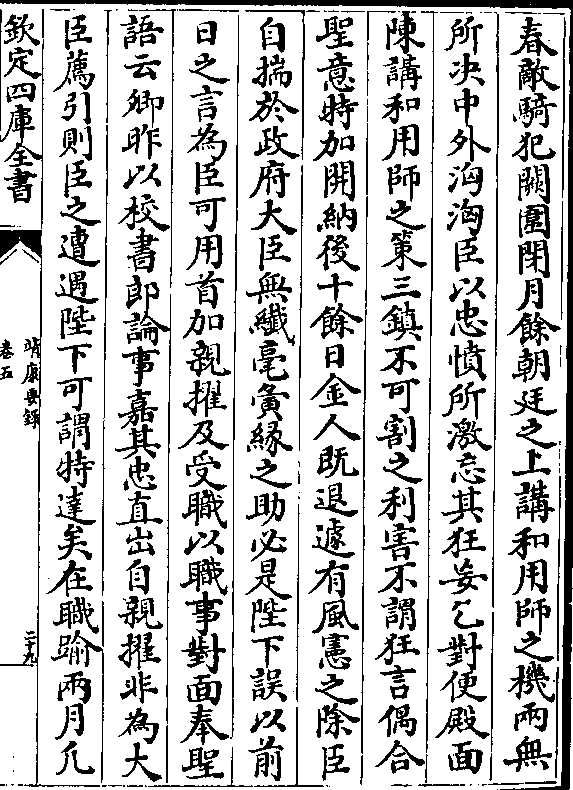 春敵騎犯闕圍閉月餘朝廷之上講和用師之機兩無
所决中外洶洶臣以忠憤所激忘其狂妄乞對便殿面
陳講和用師之策三鎮不可割之利害不謂狂言偶合
聖意特加開納後十餘日金人既退遽有風憲之除臣
自揣於政府大臣無纎毫夤緣之助必是陛下誤以前
日之言為臣可用首加親擢及受職以職事對面奉聖
語云卿昨以校書郎論事嘉其忠直出自親擢非為大
臣薦引則臣之遭遇陛下可謂特達矣在職踰兩月凡
欽定四庫全書
靖康要錄
卷五
二十九